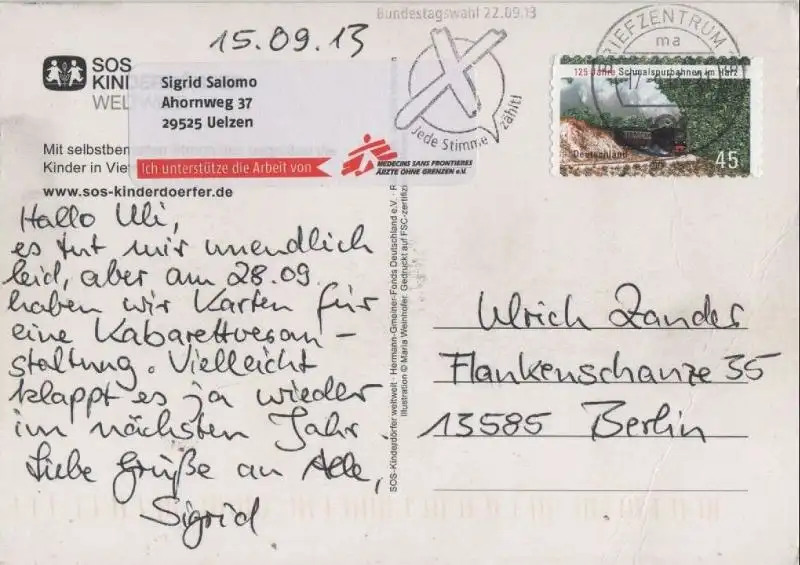 15.09.13
Bundestagswahl 22.09.13
Jede Stimme zählt!
BRIEFZENTRUM
ma
125 Jahre Schmalspurbahnen im Harz
Deutschland
45
SOS
KIND
WELTW
Sigrid Salomo
Ahornweg 37
29525 Uelzen
Mit selbstben
Kinder in Vie
Ich unterstütze die Arbeit von
MEDECINS SANS FRONTIERES
ÄRZTE OHNE GRENZEN e.V.
www.sos-kinderdoerfer.de
Hallo Uli,
es tut mir unendlich
leid, aber am 28.09.
haben wir Karten für
eine Kabarettveran-
staltung. Vielleicht
klappt es ja wieder
im nächsten Jahr.
Liebe Grüße an Alle,
Sigrid
SOS-Kinderdörfer weltweit · Hermann-Gmeiner-Fonds Deutschland e.V. · R
Illustration © Maria Weinhofer. Gedruckt auf FSC-zertifizi
Ulrich Zander
Flankenschanze 35
13585 Berlin